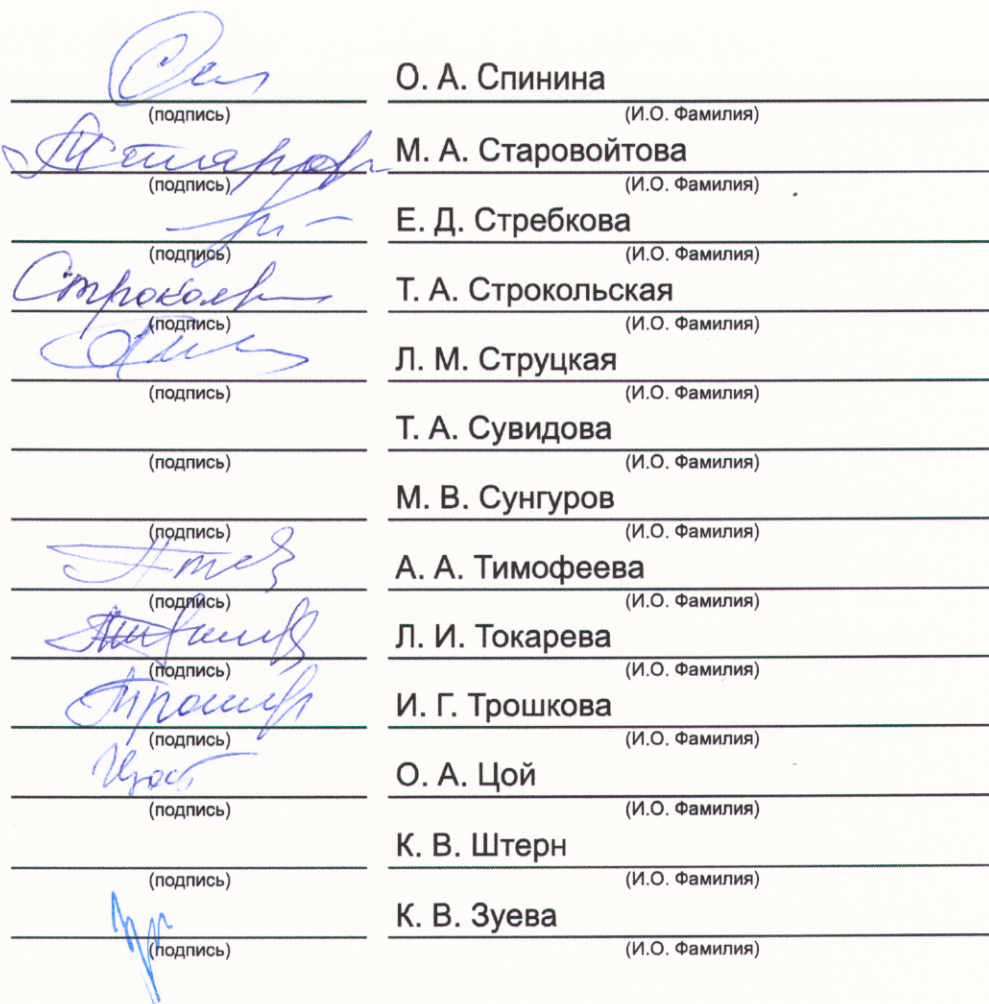 О. А. Спинина
(подпись) (И.О. Фамилия)
М. А. Старовойтова
(подпись) (И.О. Фамилия)
Е. Д. Стребкова
(подпись) (И.О. Фамилия)
Т. А. Строкольская
(подпись) (И.О. Фамилия)
Л. М. Струцкая
(подпись) (И.О. Фамилия)
Т. А. Сувидова
(подпись) (И.О. Фамилия)
М. В. Сунгуров
(подпись) (И.О. Фамилия)
А. А. Тимофеева
(подпись) (И.О. Фамилия)
Л. И. Токарева
(подпись) (И.О. Фамилия)
И. Г. Трошкова
(подпись) (И.О. Фамилия)
О. А. Цой
(подпись) (И.О. Фамилия)
К. В. Штерн
(подпись) (И.О. Фамилия)
К. В. Зуева
(подпись) (И.О. Фамилия)